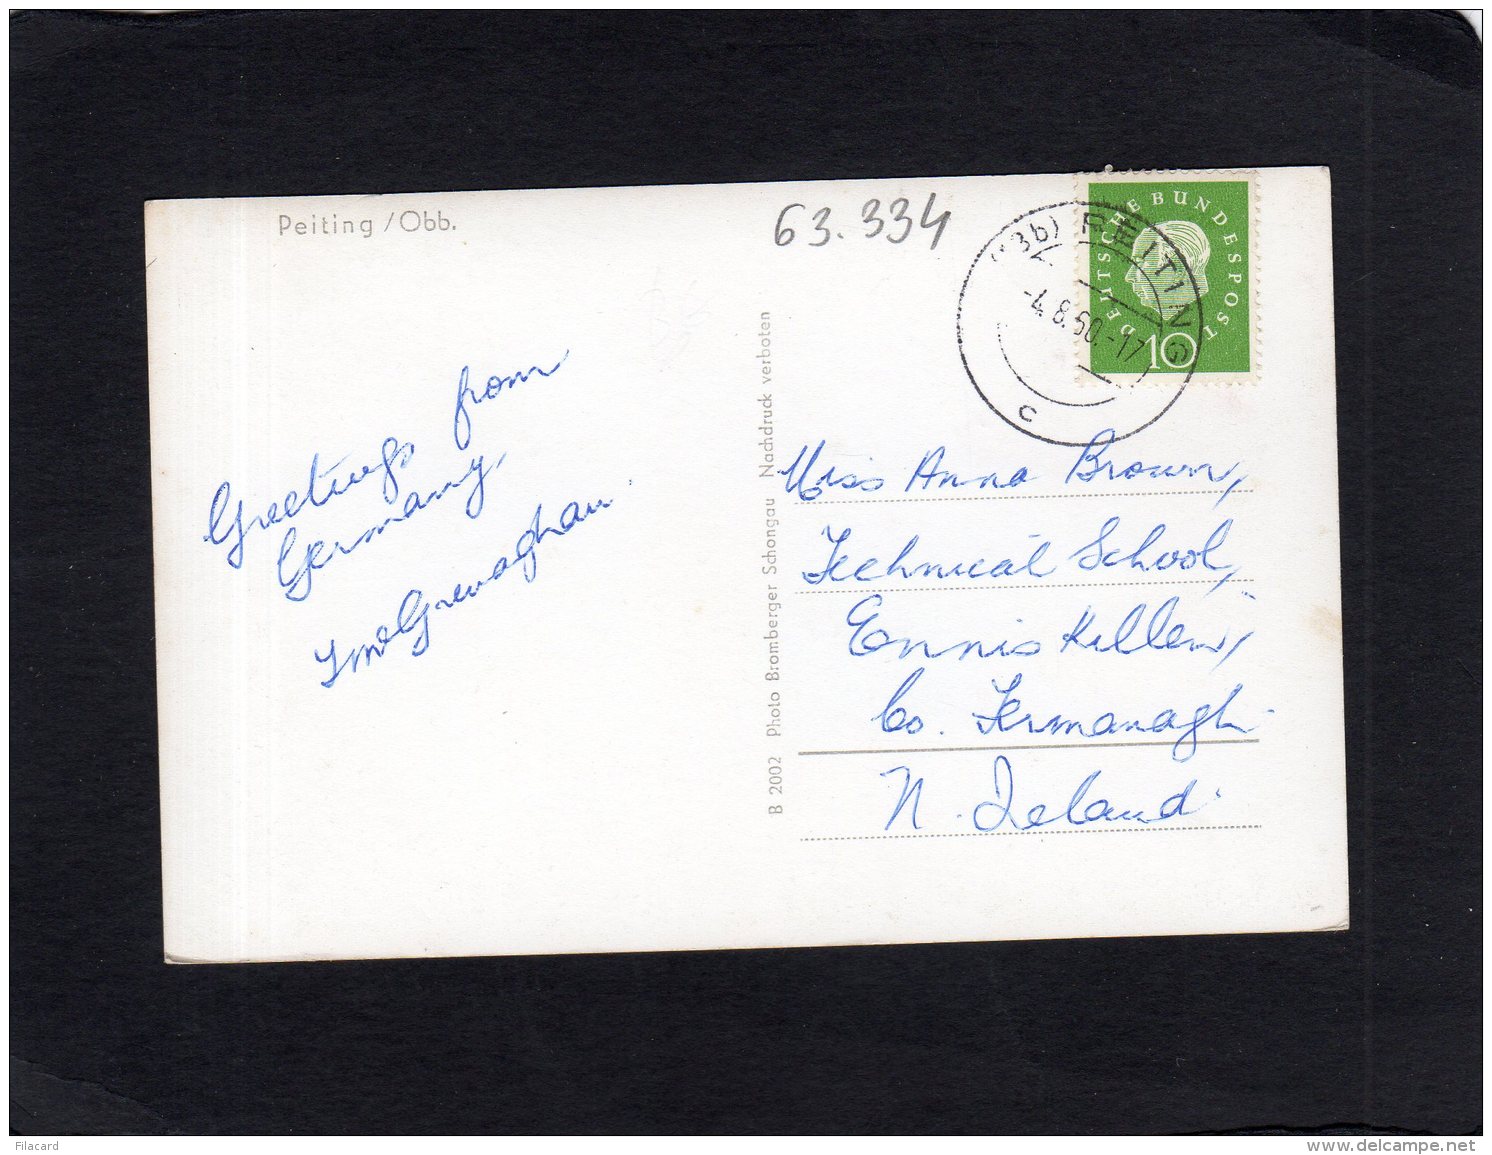 Peiting / Obb.
63.334
(13b) PEITING
-4.8.60.-17
c
DEUTSCHE BUNDESPOST
10
Greetings from
Germany.
B 2002 Photo Bromberger Schongau Nachdruck verboten
Miss Anna Brown,
Technical School,
Enniskillen,
Co. Fermanagh
N. Ireland
Filacard
www.delcampe.net